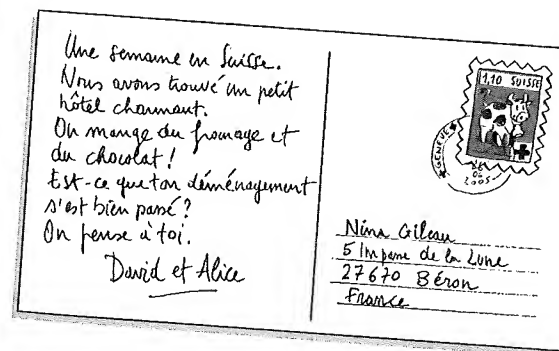 Une semaine en Suisse.
Nous avons trouvé un petit
hôtel charmant.
On mange du fromage et
du chocolat !
Est-ce que ton déménagement
s'est bien passé ?
On pense à toi.
David et Alice
1,10 SUISSE
GENEVE
06
2005
Nina
5 Impasse de la Lune
27670 Béron
France